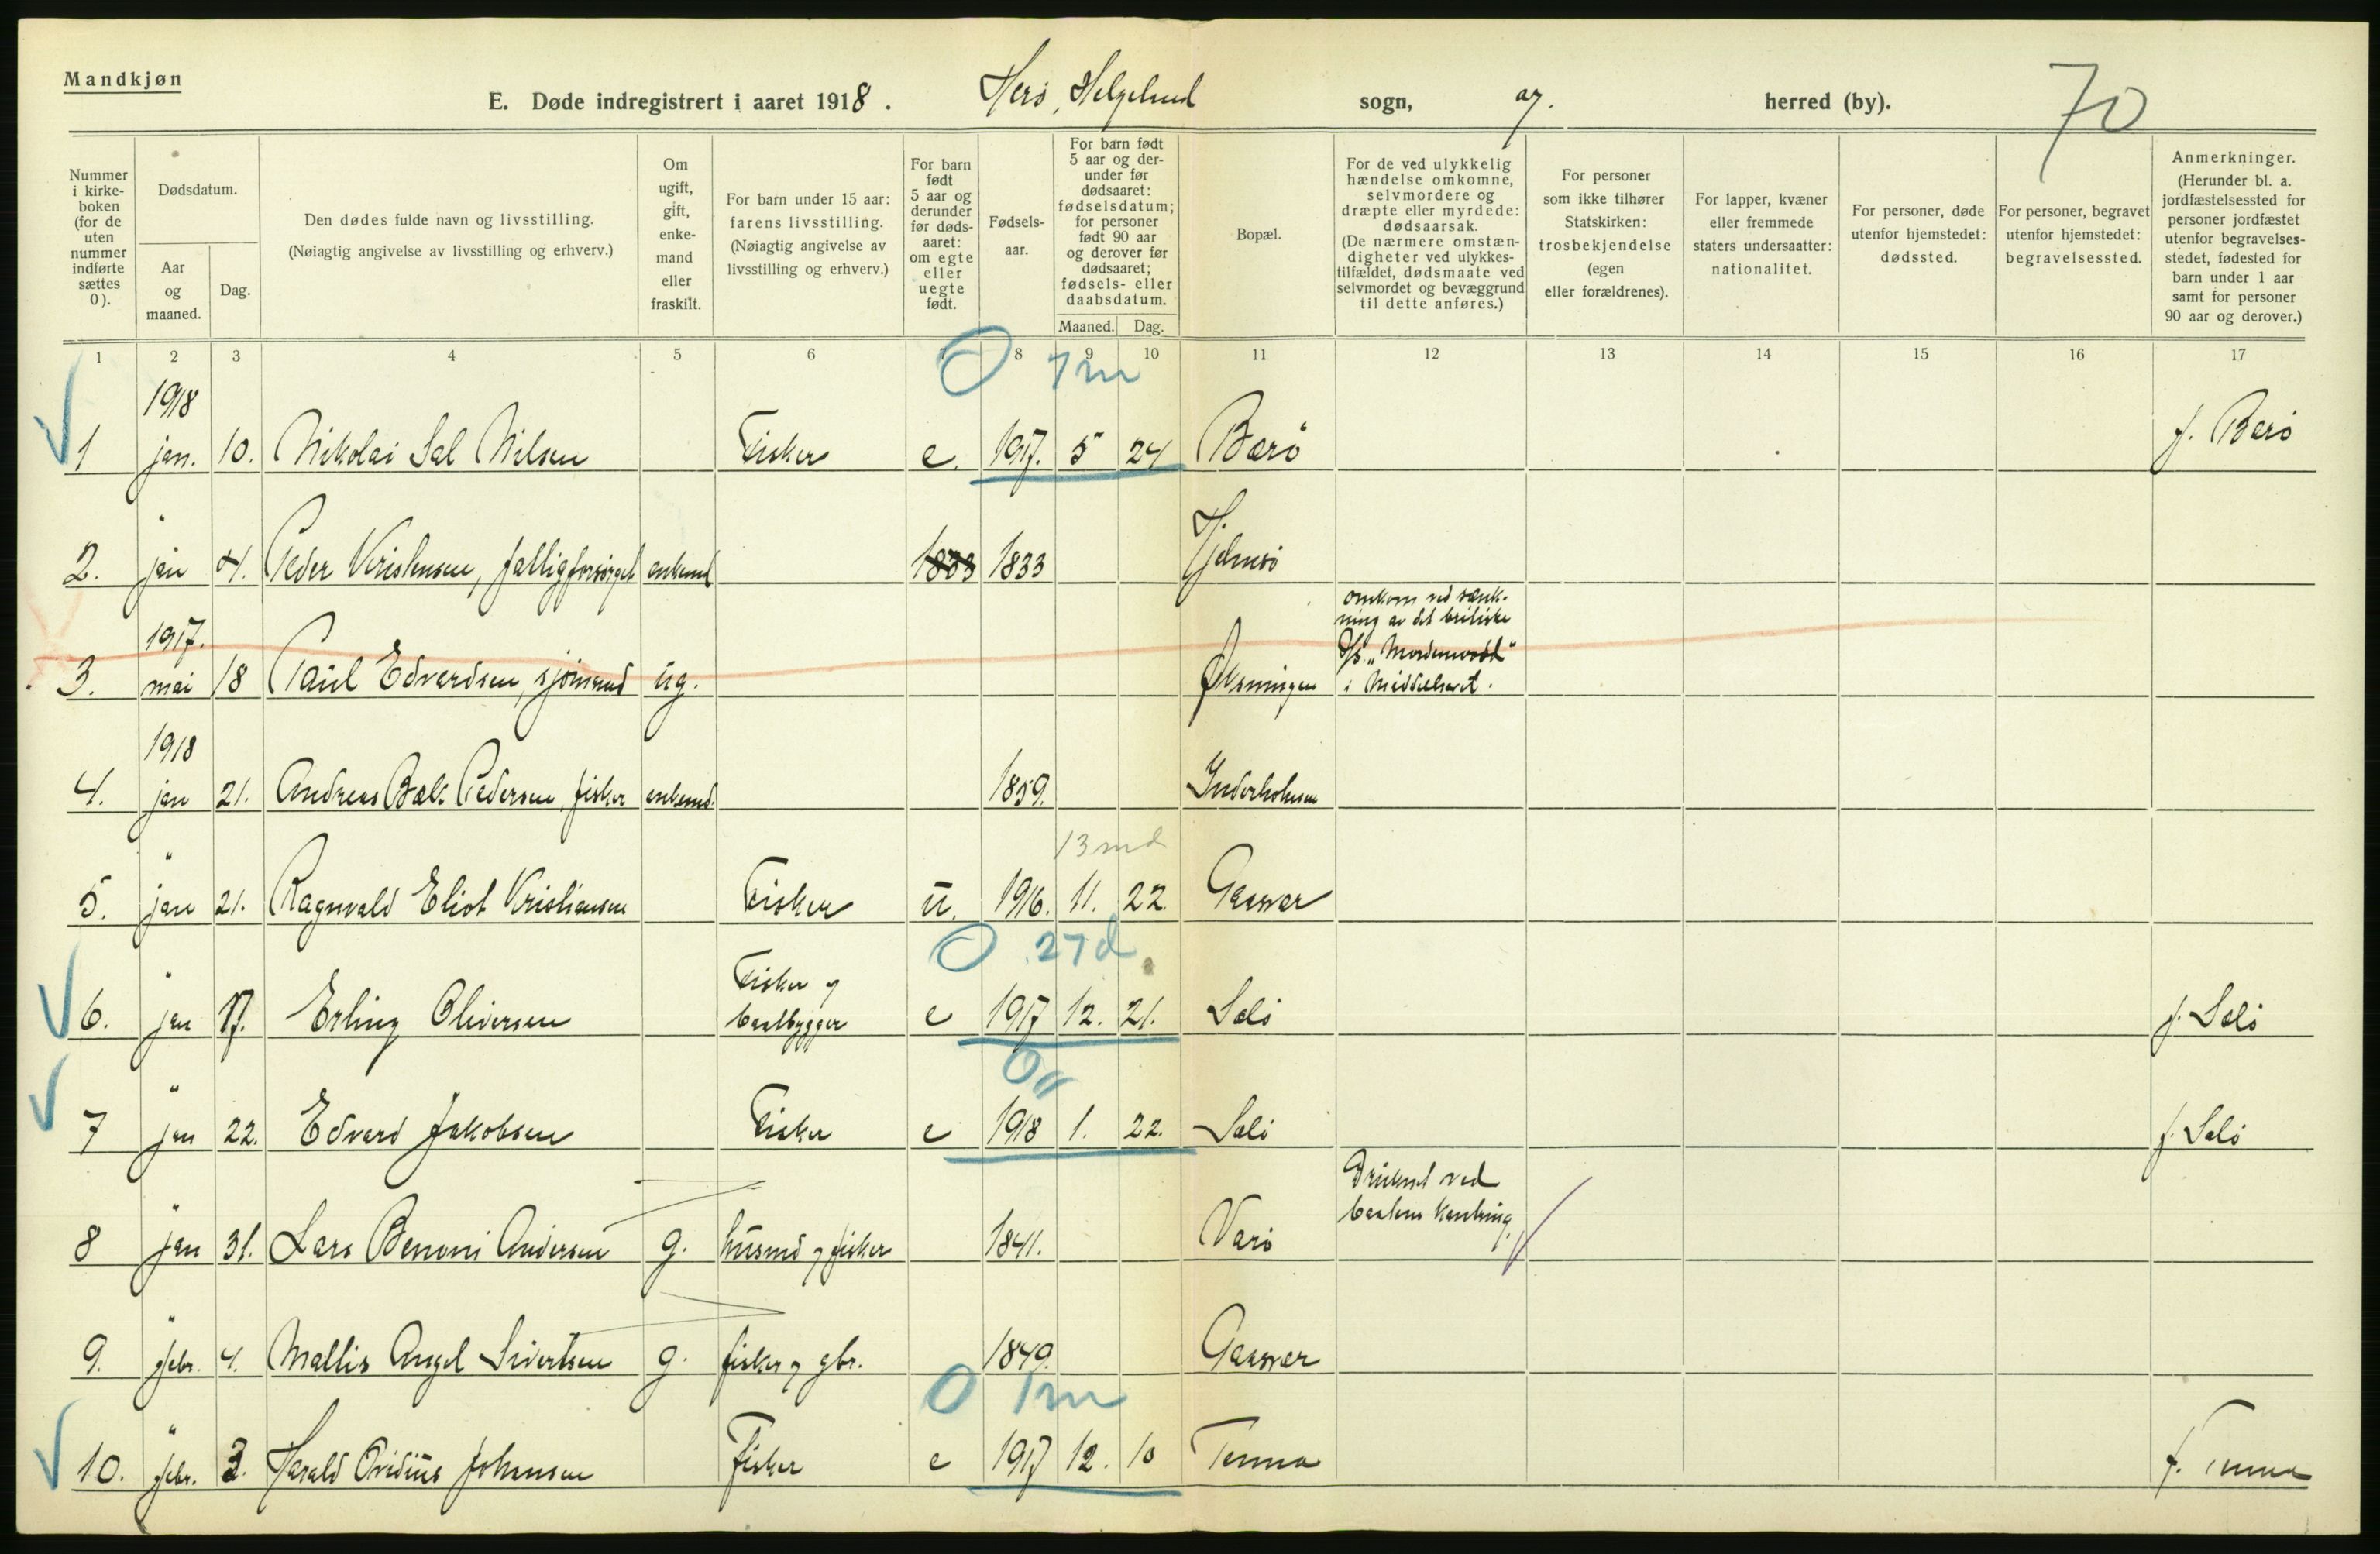 Mandkjøn
E. Døde indregistrert i aaret 1918. Herø, Helgeland sogn, og. herred (by). 70
Nummer i kirke-boken (for de uten nummer indførte sættes 0).
Dødsdatum.
Aar og maaned.
Dag.
Den dødes fulde navn og livsstilling.
(Nøiagtig angivelse av livsstilling og erhverv.)
Om ugift, gift, enke-mand eller fraskilt.
For barn under 15 aar: farens livsstilling. (Nøiagtig angivelse av livsstilling og erhverv.)
For barn født 5 aar og derunder før døds-aaret: om egte eller uegte født.
Fødsels-aar.
For barn født 5 aar og der-under før dødsaaret: fødselsdatum; for personer født 90 aar og derover før dødsaaret; fødsels- eller daabsdatum.
Maaned. Dag.
Bopæl.
For de ved ulykkelig hændelse omkomne, selvmordere og dræpte eller myrdede: dødsaarsak. (De nærmere omstæn-digheter ved ulykkes-tilfældet, dødsmaate ved selvmordet og bevæggrund til dette anføres.)
For personer som ikke tilhører Statskirken: trosbekjendelse (egen eller forældrenes).
For lapper, kvæner eller fremmede staters undersaatter: nationalitet.
For personer, døde utenfor hjemstedet: dødssted.
For personer, begravet utenfor hjemstedet: begravelsessted.
Anmerkninger. (Herunder bl. a. jordfæstelsessted for personer jordfæstet utenfor begravelses-stedet, fødested for barn under 1 aar samt for personer 90 aar og derover.)
1 2 3 4 5 6 7 8 9 10 11 12 13 14 15 16 17
0 7 m
1918
1 jan. 10. Nikolai Sal Nilsen Fisker e. 1917. 5 24 Berø f. Berø
"
2. jan 4. Peder Kristensen, fattigforsörget enkemd 1833 1833 Hjelmsö
omkom ved sænk-
ning av det britiske
1917. D/S. „Mordenwood"
3. mai 18 Paul Edvardsen, sjömand ug. Øksningen i Middelhavet.
1918
4. jan 21. Andreas Bak Pedersen, fisker enkemd. 1859. Inderholmen
13 md
"
5. jan 21. Ragnvald Eliot Kristiansen Fisker u. 1916. 11. 22. Gaasvær
0 27 d
" Fisker og
6. jan 17. Erling Oliversen baatbygger e 1917 12. 21. Salö f. Salö
0
"
7 jan 22. Edvard Jakobsen Fisker e 1918 1. 22. Salö f. Salö
Druknet ved
baatens kantring.
8 jan 31. Lars Benoni Andersen g. husmd og fisker 1841. Varö
"
9. febr. 4. Mallis Angel Sivertsen g. fisker og gbr. 1849. Gaasvær
0 1 m
"
10. febr. 3. Harald Ovidius Johansen Fisker e 1917 12. 10 Tenna f. Tenna